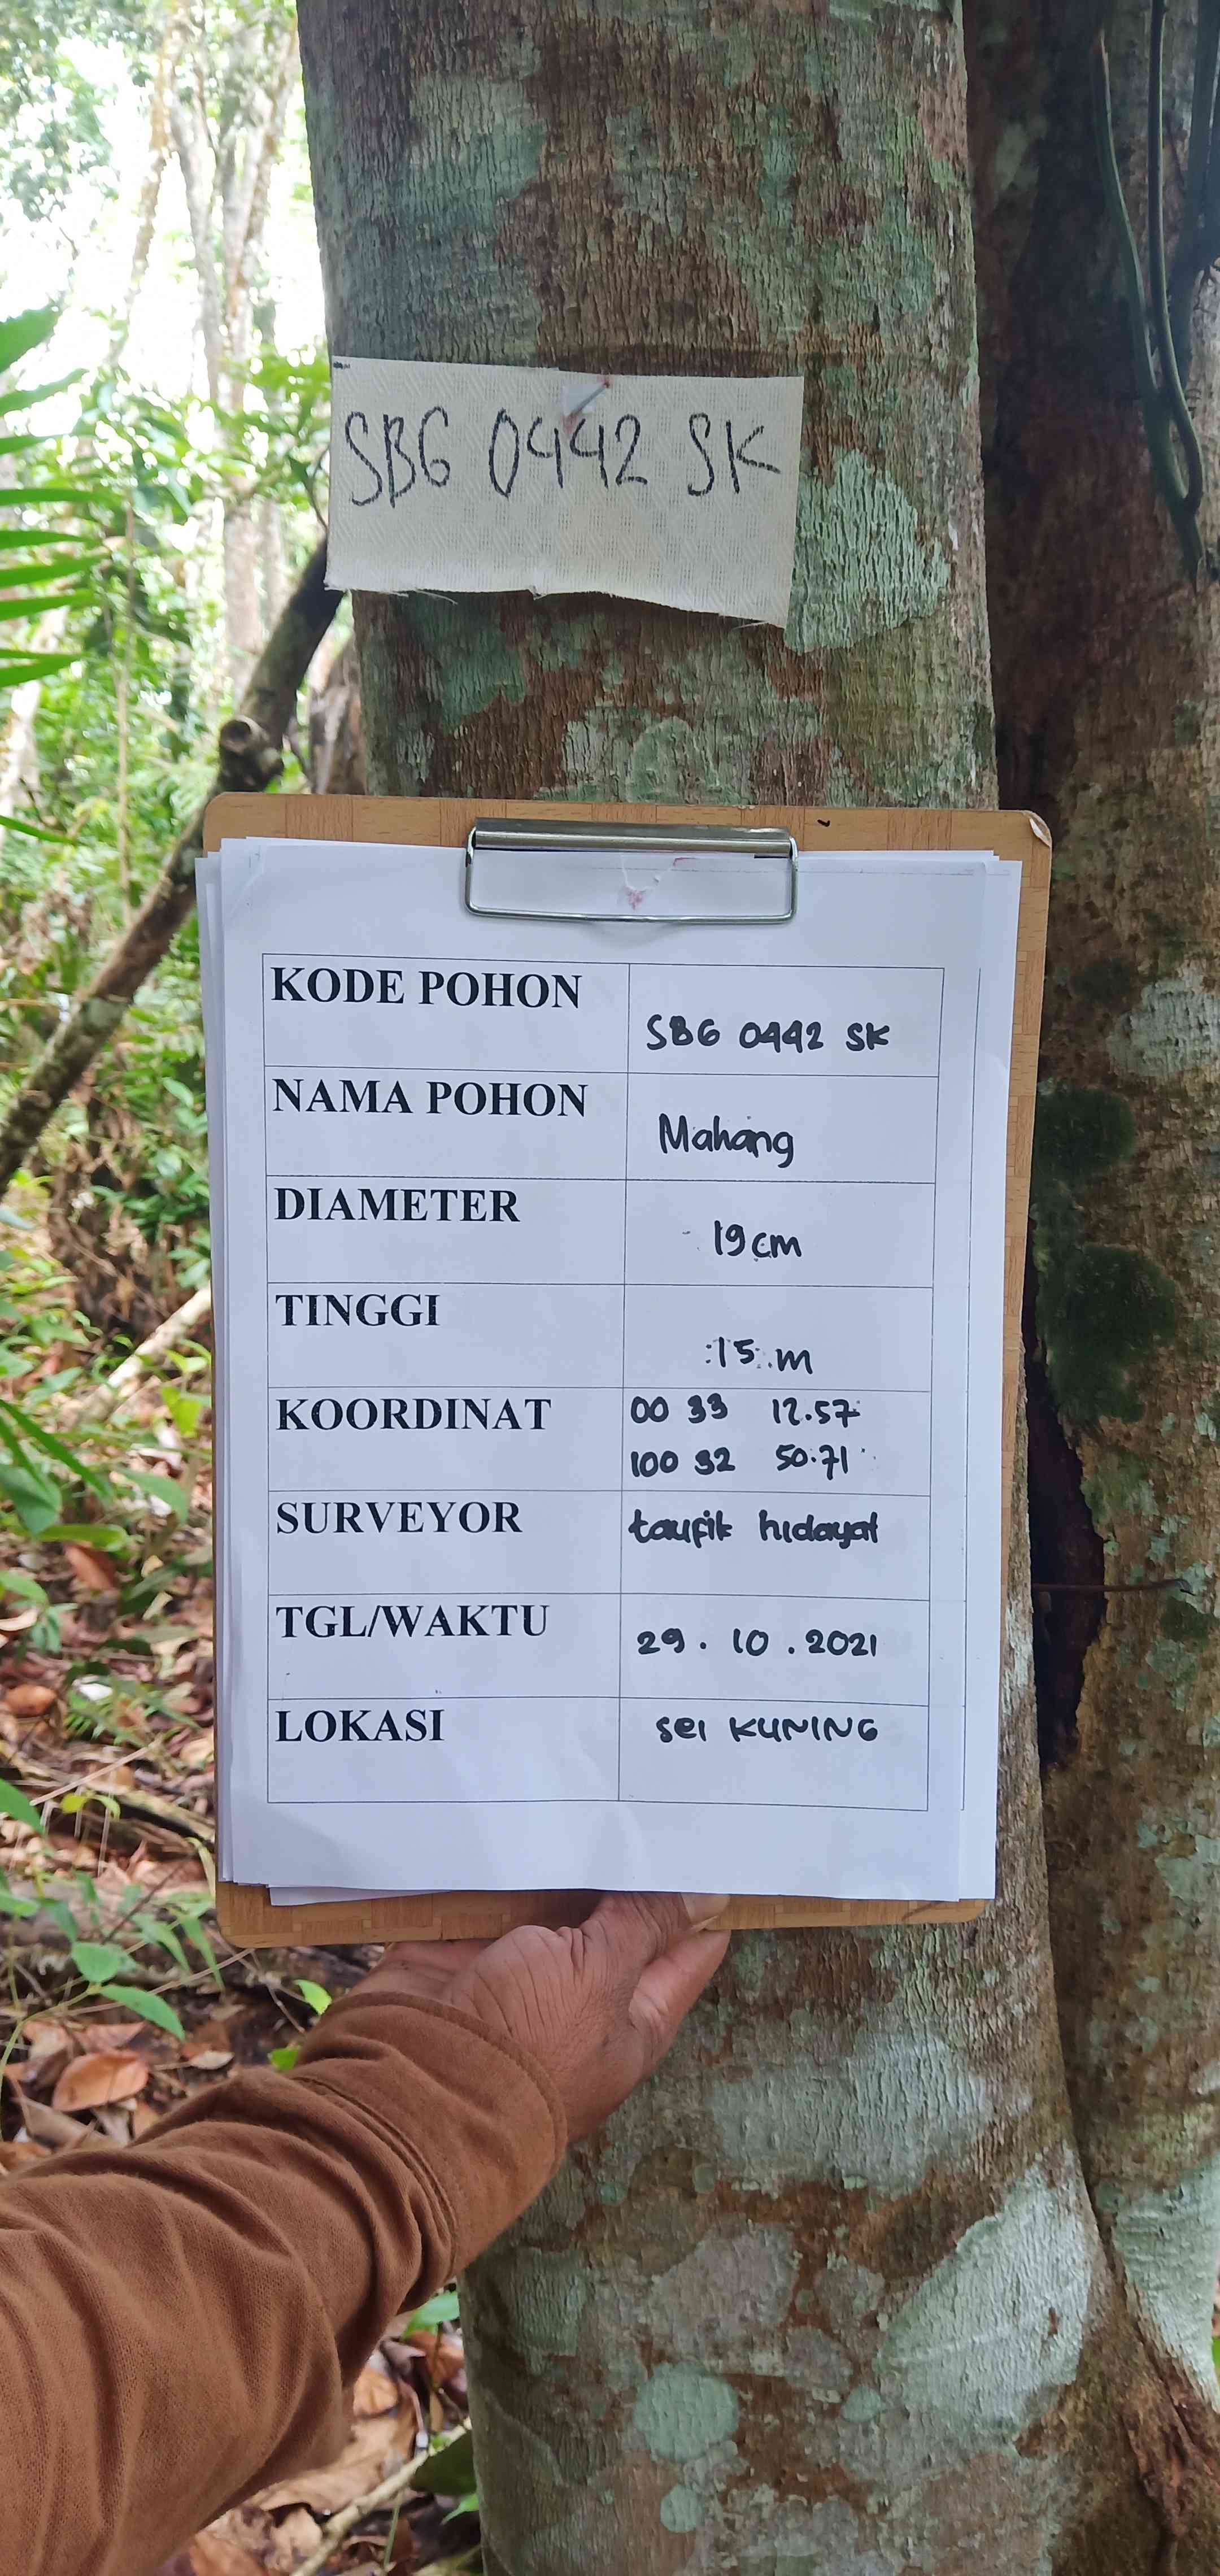 SBG 0442 SK
KODE POHON
SBG 0442 SK
NAMA POHON
Mahang
DIAMETER
19cm
TINGGI
15 m
KOORDINAT
00 33 12.57
100 32 50.71
SURVEYOR
taufik hidayat
TGL/WAKTU
29 . 10 . 2021
LOKASI
Sei KUNING